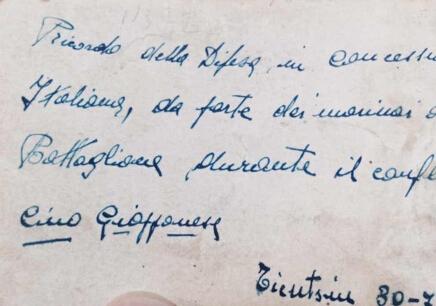 Ricordo della Difesa in concess
Italiana, da parte dei marinai d
Battaglione durante il confl
Cino Giapponese
Tientsin 30-7